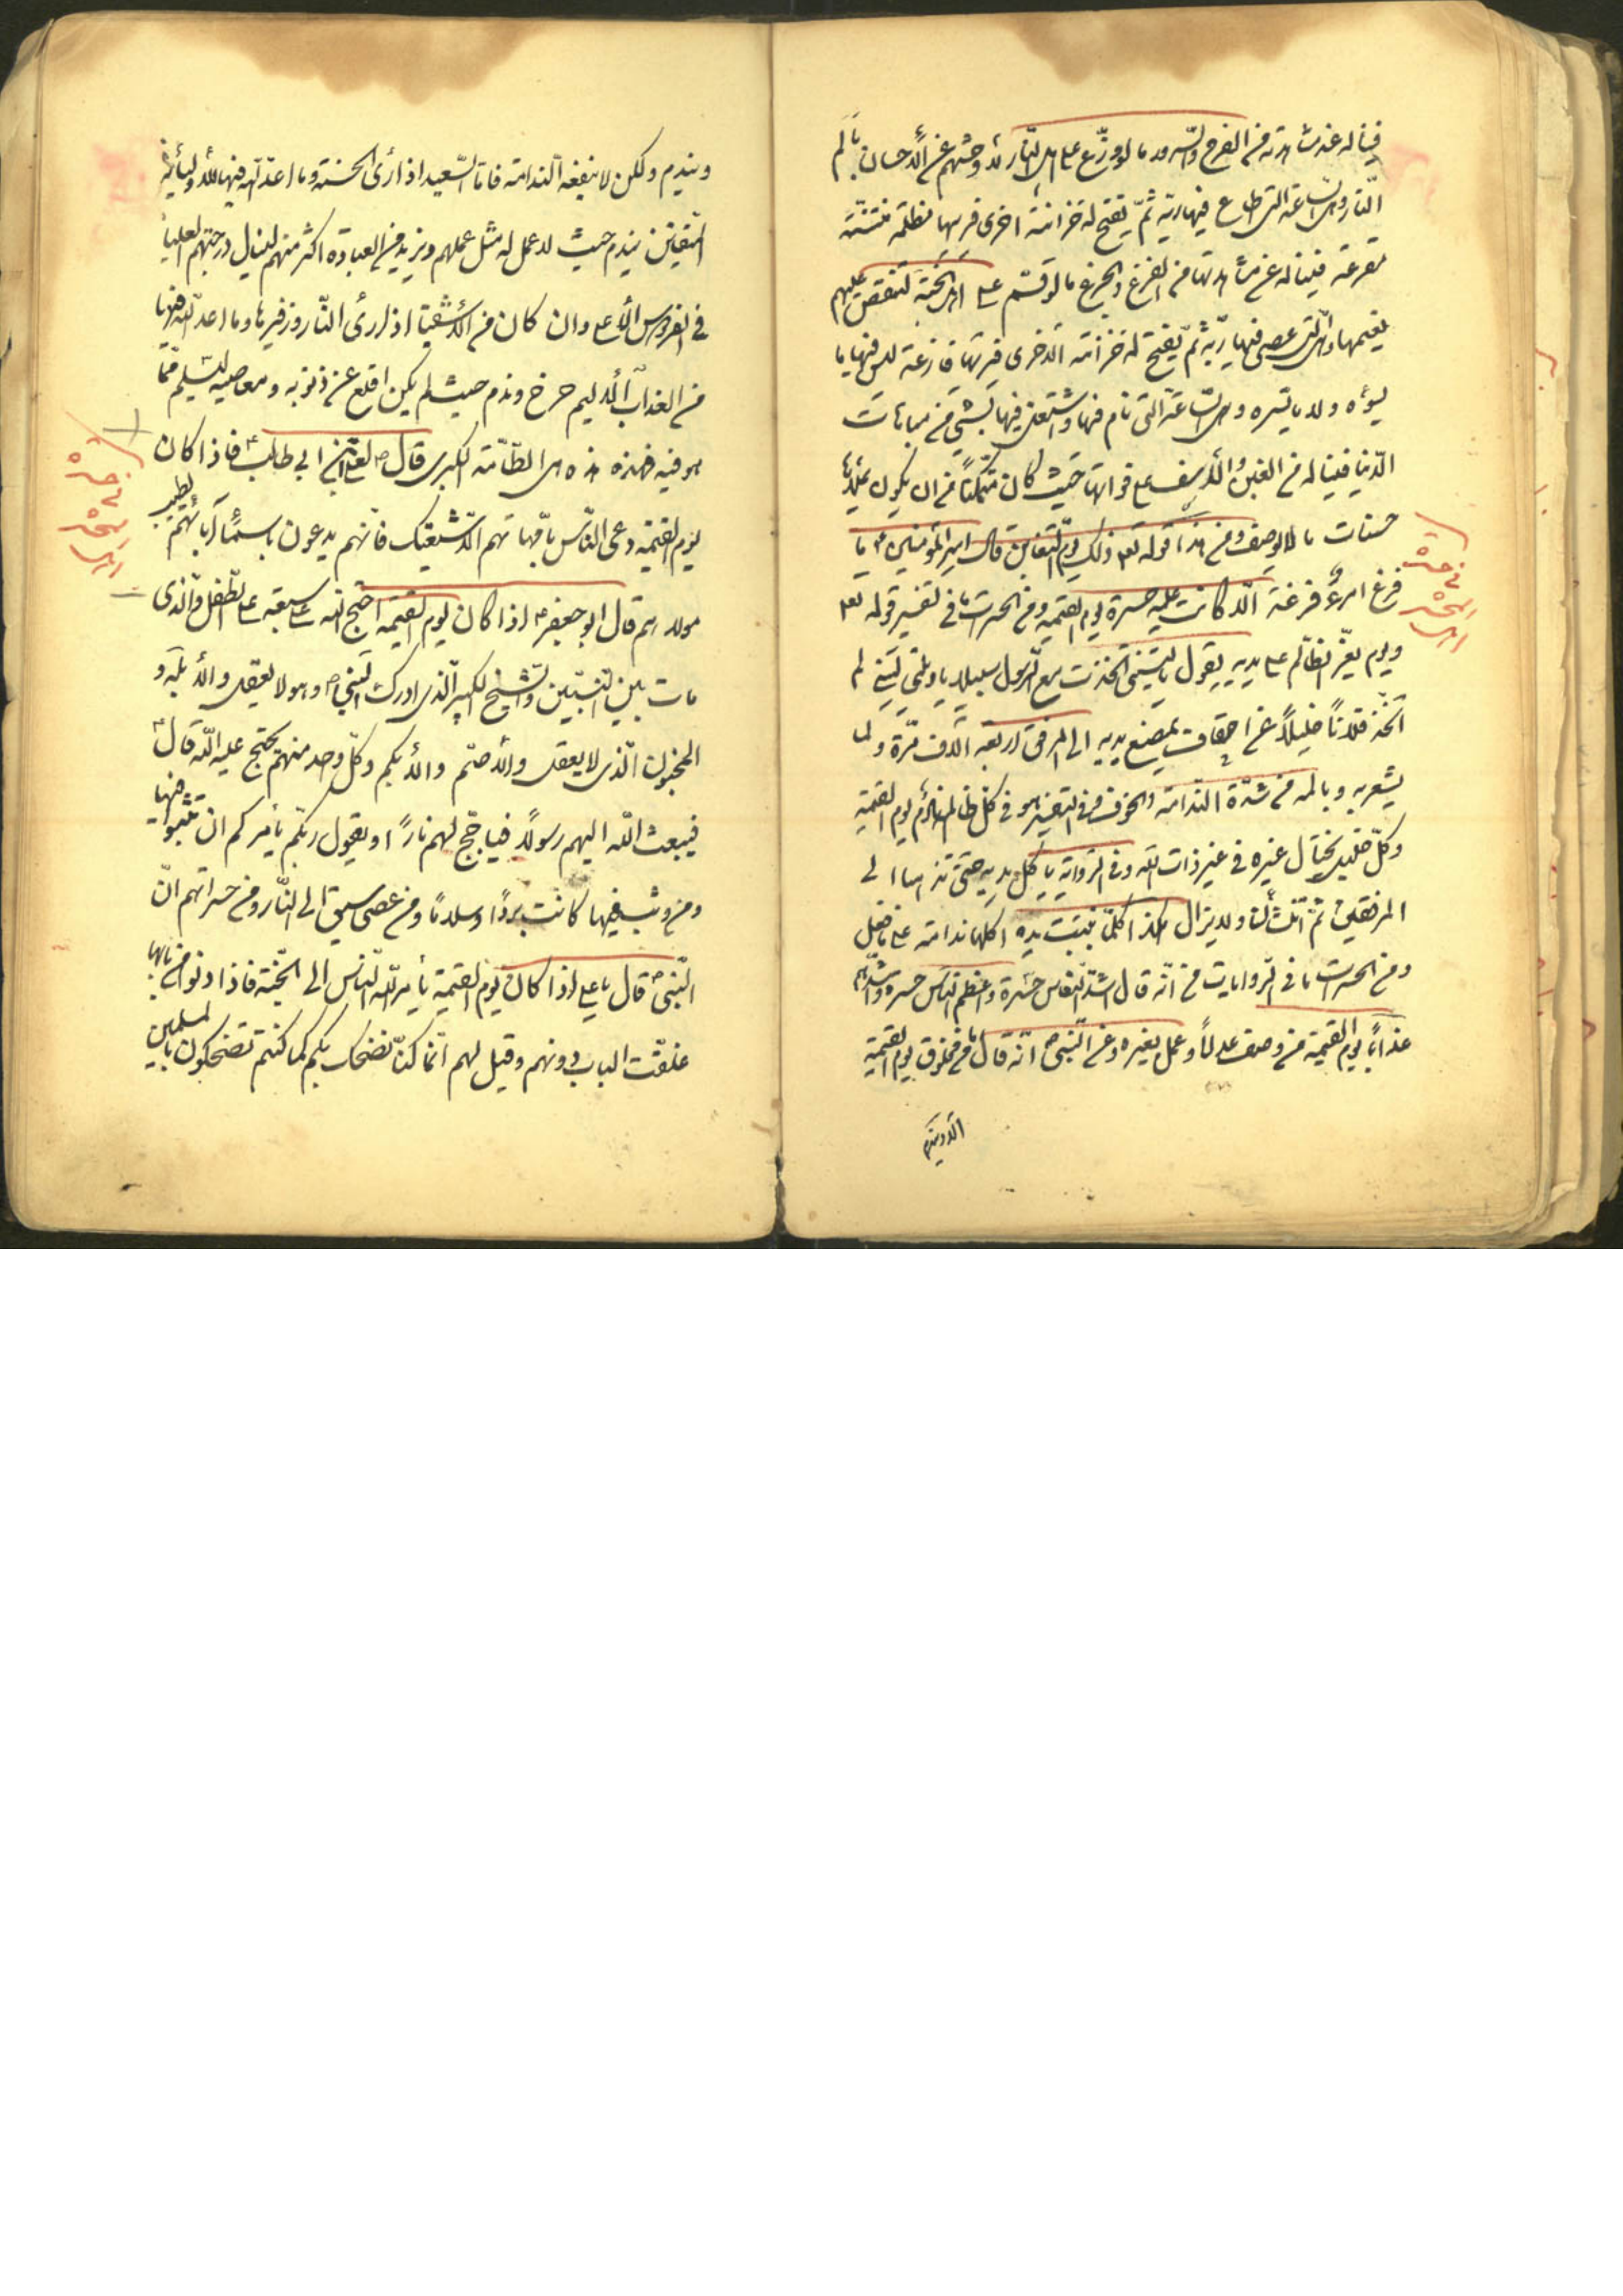 فيناله عند مشاهدته من الفرح والسرور ما لو وزّع على اهل النّار لادهشهم عن الاحساس بالم
النّار وهى السّاعة التى اطاع فيها ربّه ثمّ يفتح له خزانة اخرى فيريها مظلمة منتنة
مفزعة فيناله عن مشاهدتها من الفزع والجزع ما لو قسّم على اهل الجنّة لنغّص عليهم
نعيمها وهى الّتى عصى فيها ربّه ثمّ يفتح له خزانة اخرى فيريها فارغة ليس فيها ما
يسوءه ولا ما يسره وهى السّاعة التى نام فيها واشتغل فيها بشئ من مباحات
الدّنيا فيناله من الغبن والاسف على فواتها حيث كان متمكّناً من ان يكون يملاءها
حسنات ما لا يوصف ومن هذا قوله تعالى ذلك يوم التغابن قال امير المؤمنين ع ما
فرغ امرؤ فرغة الّا كانت عليه حسرة يوم القيمة ومن الحسرات ما فى تفسير قوله تعالى
ويوم يعضّ الظّالم على يديه يقول يا ليتنى اتخذت مع الرّسول سبيلا يا ويلتى ليتنى لم
اتّخذ فلاناً خليلاً عن يمضغ يديه الى المرفق اربعة الاف مرّة ولا
يشعر به وبالمه من شدّة الندامة والخوف وفى التفسير هو فى كلّ ظالم نادم يوم القيمة
وكلّ خليل يختال غيره فى غير ذات اللّه وفى الرّواية يأكل يديه حتى تذهبا الى
المرفقين ثمّ ولا يزال هكذا كلّما نبتت يده اكلها ندامة على ما فعل
ومن الحسرات ما فى الرّوايات من انّه قال اشدّ النّاس حسرة واعظم النّاس حسرة واشدّهم
عذاباً يوم القيمة من وصف عدلاً وعمل بغيره وعن النّبى ص انّه قال ما من مخلوق يوم القيمة
الا ويندم
من حسرة
المحشر
ويندم ولكن لا ينفعه النّدامة فامّا السّعيد اذا رأى الجنّة وما اعدّ اللّه فيها لاوليائه
المتّقين يندم حيث لا عمل له مثل عملهم ويزيد من العبادة اكثر منهم لينال درجتهم العليا
فى الفردوس الاعلى وان كان من الاشقياء اذا رأى النّار وزفيرها وما اعدّ اللّه فيها
من العذاب الاليم صرخ وندم حيث لم يكن اقلع عن ذنوبه ومعاصيه ليسلم ممّا
هو فيه فهذه هى الطّامّة الكبرى قال ص لعلى بن ابى طالب ع فاذا كان
يوم القيمة دعى النّاس بامّهاتهم الّا شيعتك فانّهم يدعون باسماء آبائهم لطيب
مولدهم قال ابو جعفر ع اذا كان يوم القيمة احتج اللّه على سبعة على الطّفل والّذى
مات بين النّبيّين والشّيخ الكبير الّذى ادرك النّبى ص وهو لا يعقل والابله و
المجنون الّذى لا يعقل والاصمّ والابكم وكلّ واحد منهم يحتج على اللّه قال ع
فيبعث اللّه اليهم رسولاً فياجّج لهم ناراً او يقول ربّكم يأمركم ان تثبوا فيها
ومن وثب فيها كانت برداً وسلاماً ومن عصى سيق الى النّار ومن حسراتهم انّ
النّبىّ ص قال يا على اذا كان يوم القيمة يأمر اللّه النّاس الى الجنّة فاذا دنوا من بابها
غلقت الباب دونهم وقيل لهم انّما كنّا نضحك بكم كما كنتم تضحكون بالمسلمين
من حسرة
المحشر